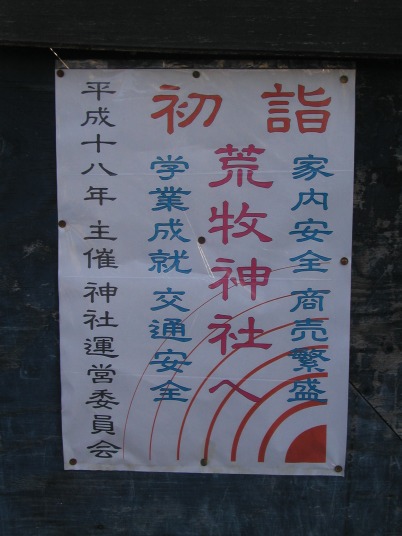 初詣
家内安全 商売繁盛
荒牧神社へ
学業成就 交通安全
平成十八年 主催 神社運営委員会